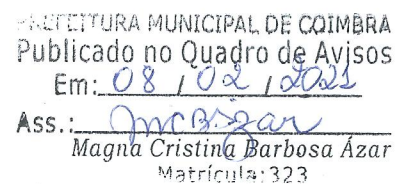 PREFEITURA MUNICIPAL DE COIMBRA
Publicado no Quadro de Avisos
Em: 08 / 02 / 2021
Ass.:
Magna Cristina Barbosa Ázar
Matrícula:323